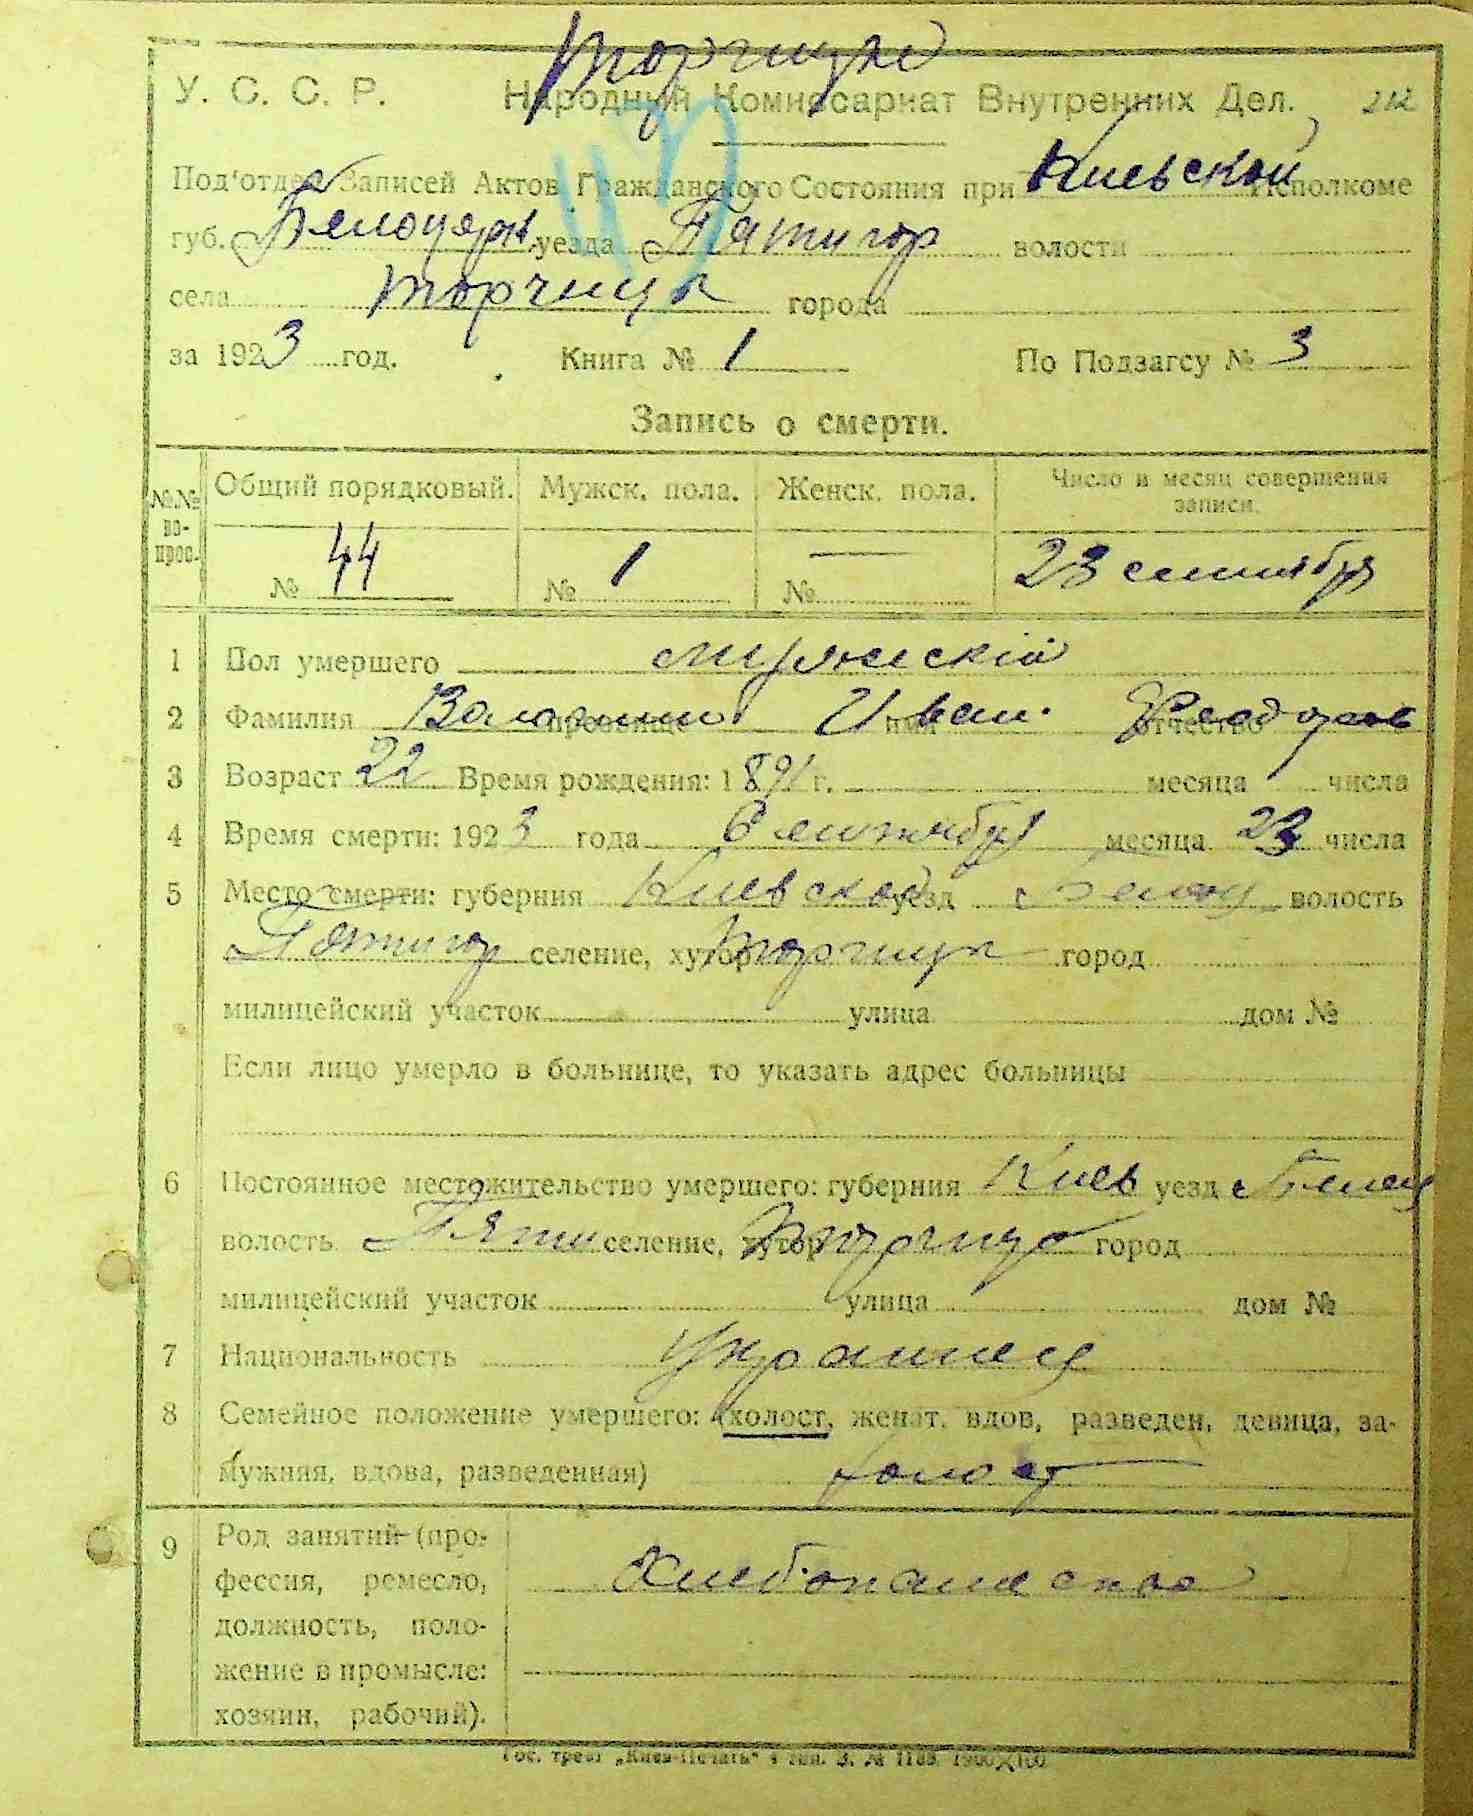 Торчиця
У. С. С. Р. Народный Комиссариат Внутренних Дел. 212
43
Под'отдел Записей Актов Гражданского Состояния при Киевской Исполкоме
губ. Белоцерк. уезда Пятигор волости
села Торчиця города
за 1923 год. Книга № 1 По Подзагсу № 3
Запись о смерти.
№№ вопрос. Общий порядковый. Мужск. пола. Женск. пола. Число и месяц совершения записи.
№ 44 № 1 № — 23 сентября
1 Пол умершего мужескій
2 Фамилия прозвище имя Иван. отчество Феодоров
3 Возраст 22 Время рождения: 1891 г. месяца числа
4 Время смерти: 1923 года Сентября месяца 23 числа
5 Место смерти: губерния Киевской уезд Белоц волость
Пятигор селение, хутор Торчиця город
милицейский участок улица дом №
Если лицо умерло в больнице, то указать адрес больницы
6 Постоянное местожительство умершего: губерния Киев уезд Белоц
волость Пяти селение, хутор Торчиця город
милицейский участок улица дом №
7 Национальность Украинец
8 Семейное положение умершего: (холост, женат, вдов, разведен, девица, за-
мужняя, вдова, разведенная) холост
9 Род занятий (про-
фессия, ремесло, Хлебопашество
должность, поло-
жение в промысле:
хозяин, рабочий).
Гос. трест „Киев-Печать“ 4 тип. З. № 1100×100